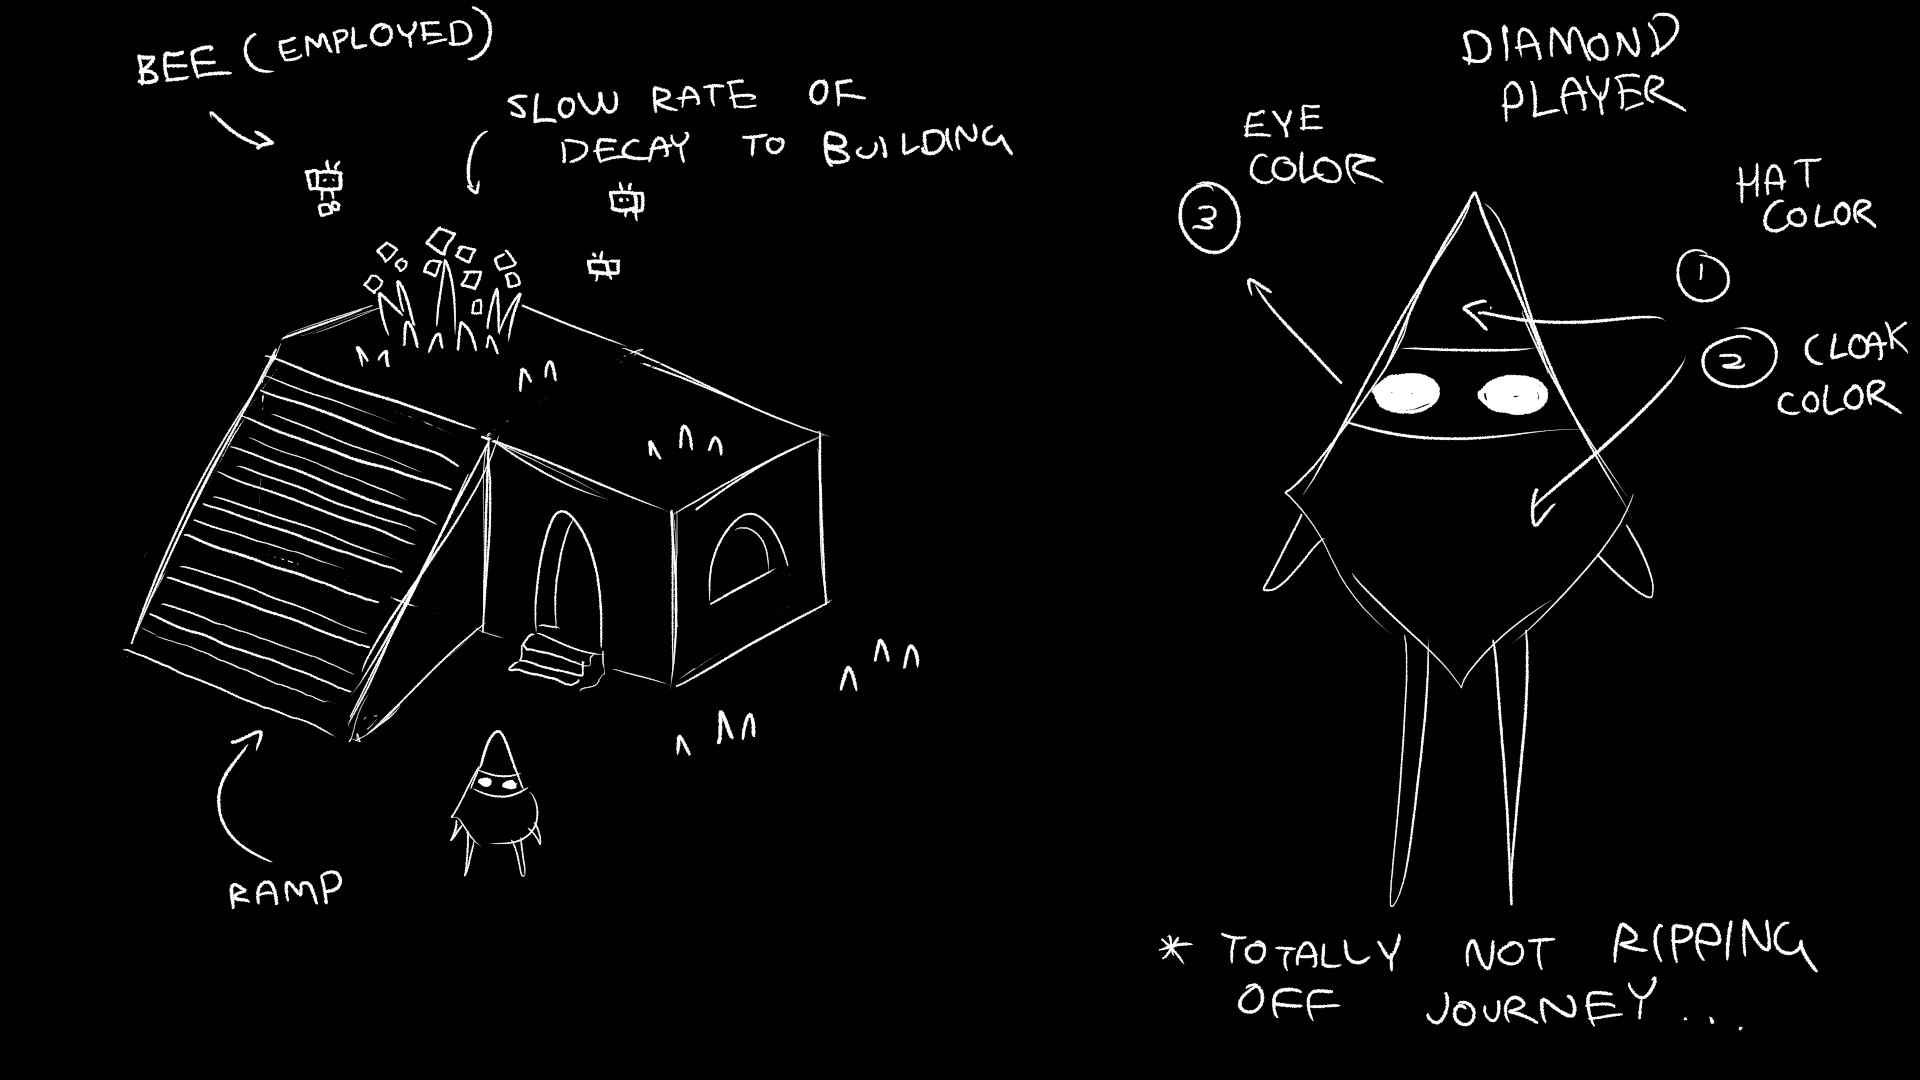 BEE (EMPLOYED)
SLOW RATE OF
DECAY TO BUILDING
RAMP
DIAMOND
PLAYER
EYE
COLOR
3
HAT
COLOR
1
2 CLOAK
COLOR
* TOTALLY NOT RIPPING
OFF JOURNEY...